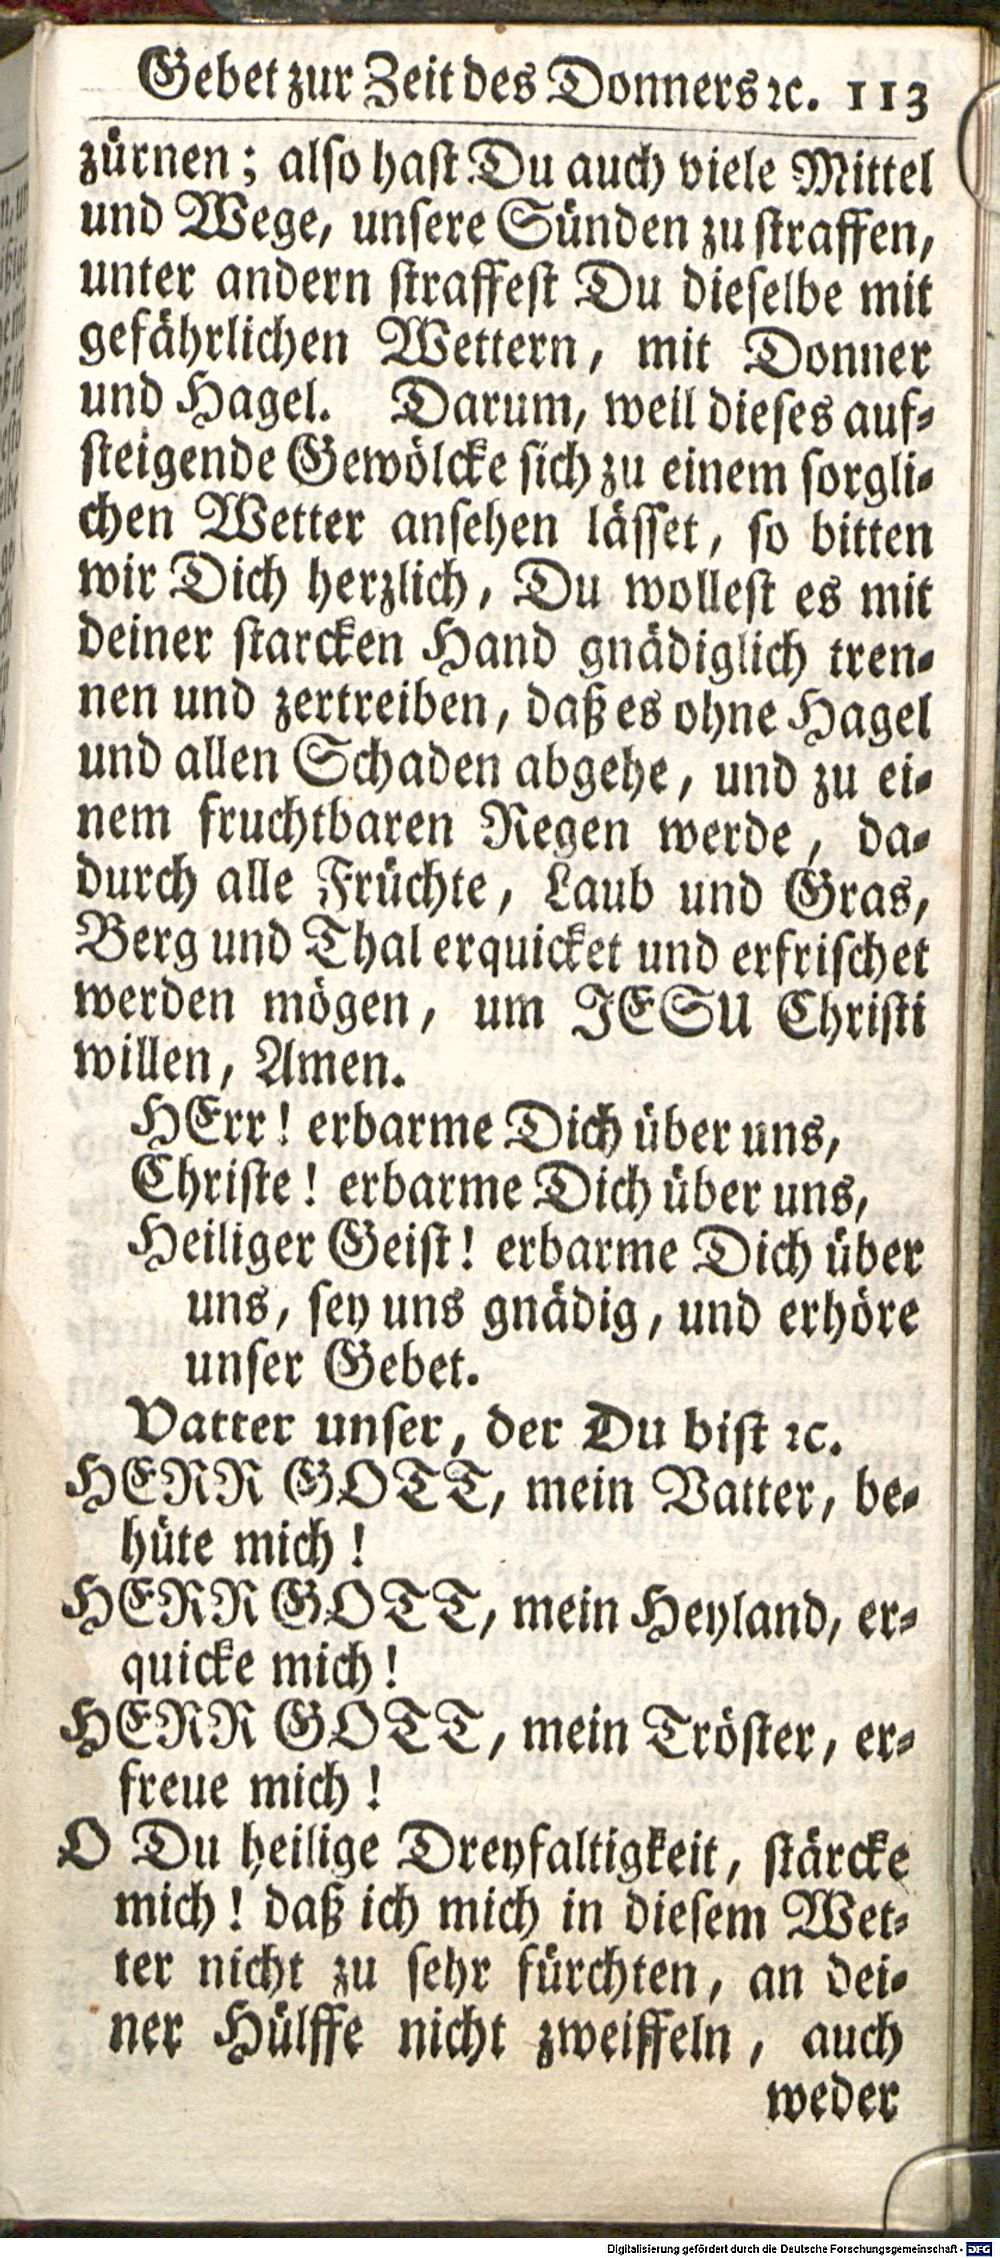 Gebet zur Zeit des Donners ꝛc. 113
zürnen; also hast Du auch viele Mittel
und Wege, unsere Sünden zu straffen,
unter andern straffest Du dieselbe mit
gefährlichen Wettern, mit Donner
und Hagel. Darum, weil dieses auf-
steigende Gewölcke sich zu einem sorgli-
chen Wetter ansehen lässet, so bitten
wir Dich herzlich, Du wollest es mit
deiner starcken Hand gnädiglich tren-
nen und zertreiben, daß es ohne Hagel
und allen Schaden abgehe, und zu ei-
nem fruchtbaren Regen werde, da-
durch alle Früchte, Laub und Gras,
Berg und Thal erquicket und erfrischet
werden mögen, um JESU Christi
willen, Amen.
HErr! erbarme Dich über uns,
Christe! erbarme Dich über uns,
Heiliger Geist! erbarme Dich über
uns, sey uns gnädig, und erhöre
unser Gebet.
Vatter unser, der Du bist ꝛc.
HERR GOTT, mein Vatter, be-
hüte mich!
HERR GOTT, mein Heyland, er-
quicke mich!
HERR GOTT, mein Tröster, er-
freue mich!
O Du heilige Dreyfaltigkeit, stärcke
mich! daß ich mich in diesem Wet-
ter nicht zu sehr fürchten, an dei-
ner Hülffe nicht zweiffeln, auch
weder
Digitalisierung gefördert durch die Deutsche Forschungsgemeinschaft - DFG